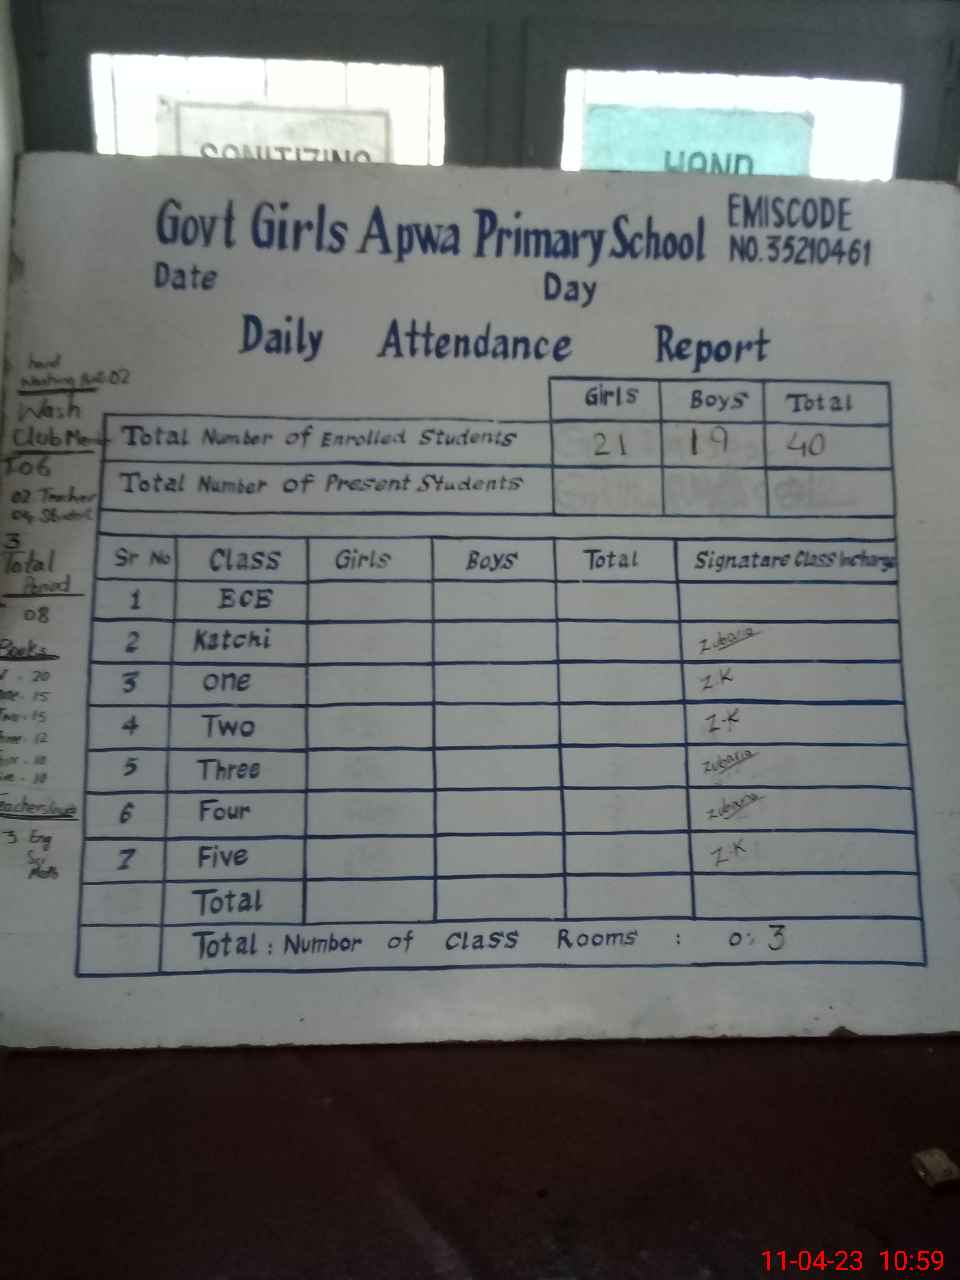 SANITIZING
HAND
Govt Girls Apwa Primary School
EMISCODE
NO.35210461
Date Day
Daily Attendance Report
Girls Boys Total
Total Number of Enrolled Students 21 19 40
Total Number of Present Students
Sr No Class Girls Boys Total Signatare Class Incharge
1 ECE
2 Katchi Zubaria
3 one Z.K
4 Two Z-K
5 Three Zubaria
6 Four Zubaria
7 Five Z-K
Total
Total : Number of Class Rooms : 0: 3
hand
Washing 02
Wash
Club
06
02 Teacher
04 Student
3
Total
Period
08
Books
20
15
15
12
10
10
3 Eng
Math
11-04-23 10:59